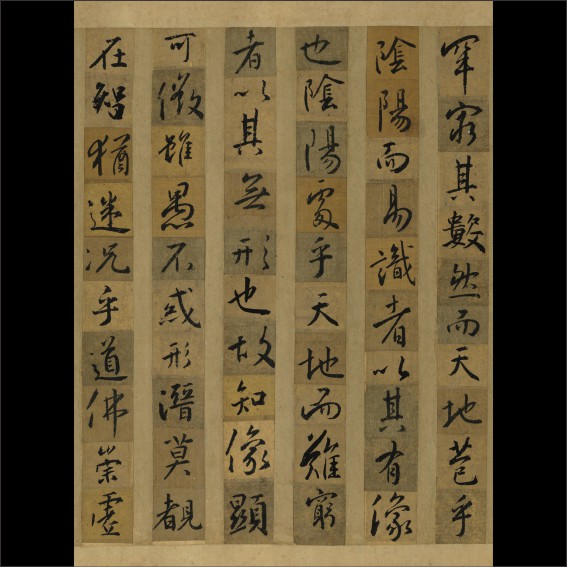 罕窮其數然而天地苞乎
陰陽而易識者以其有像
也陰陽處乎天地而難窮
者以其無形也故知像顯
可徵雖愚不惑形潛莫覩
在智猶迷況乎道佛崇虛